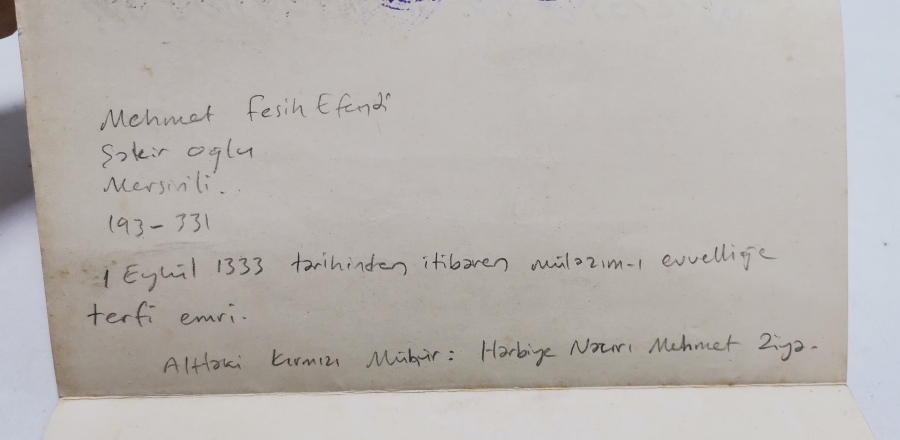 Mehmet Fesih Efendi
Şakir oğlu
Mersinli..
193-331
1 Eylül 1333 tarihinden itibaren mülazım-ı evvelliğe
terfi emri.
Alttaki Kırmızı Mühür: Harbiye Nazırı Mehmet Ziya.